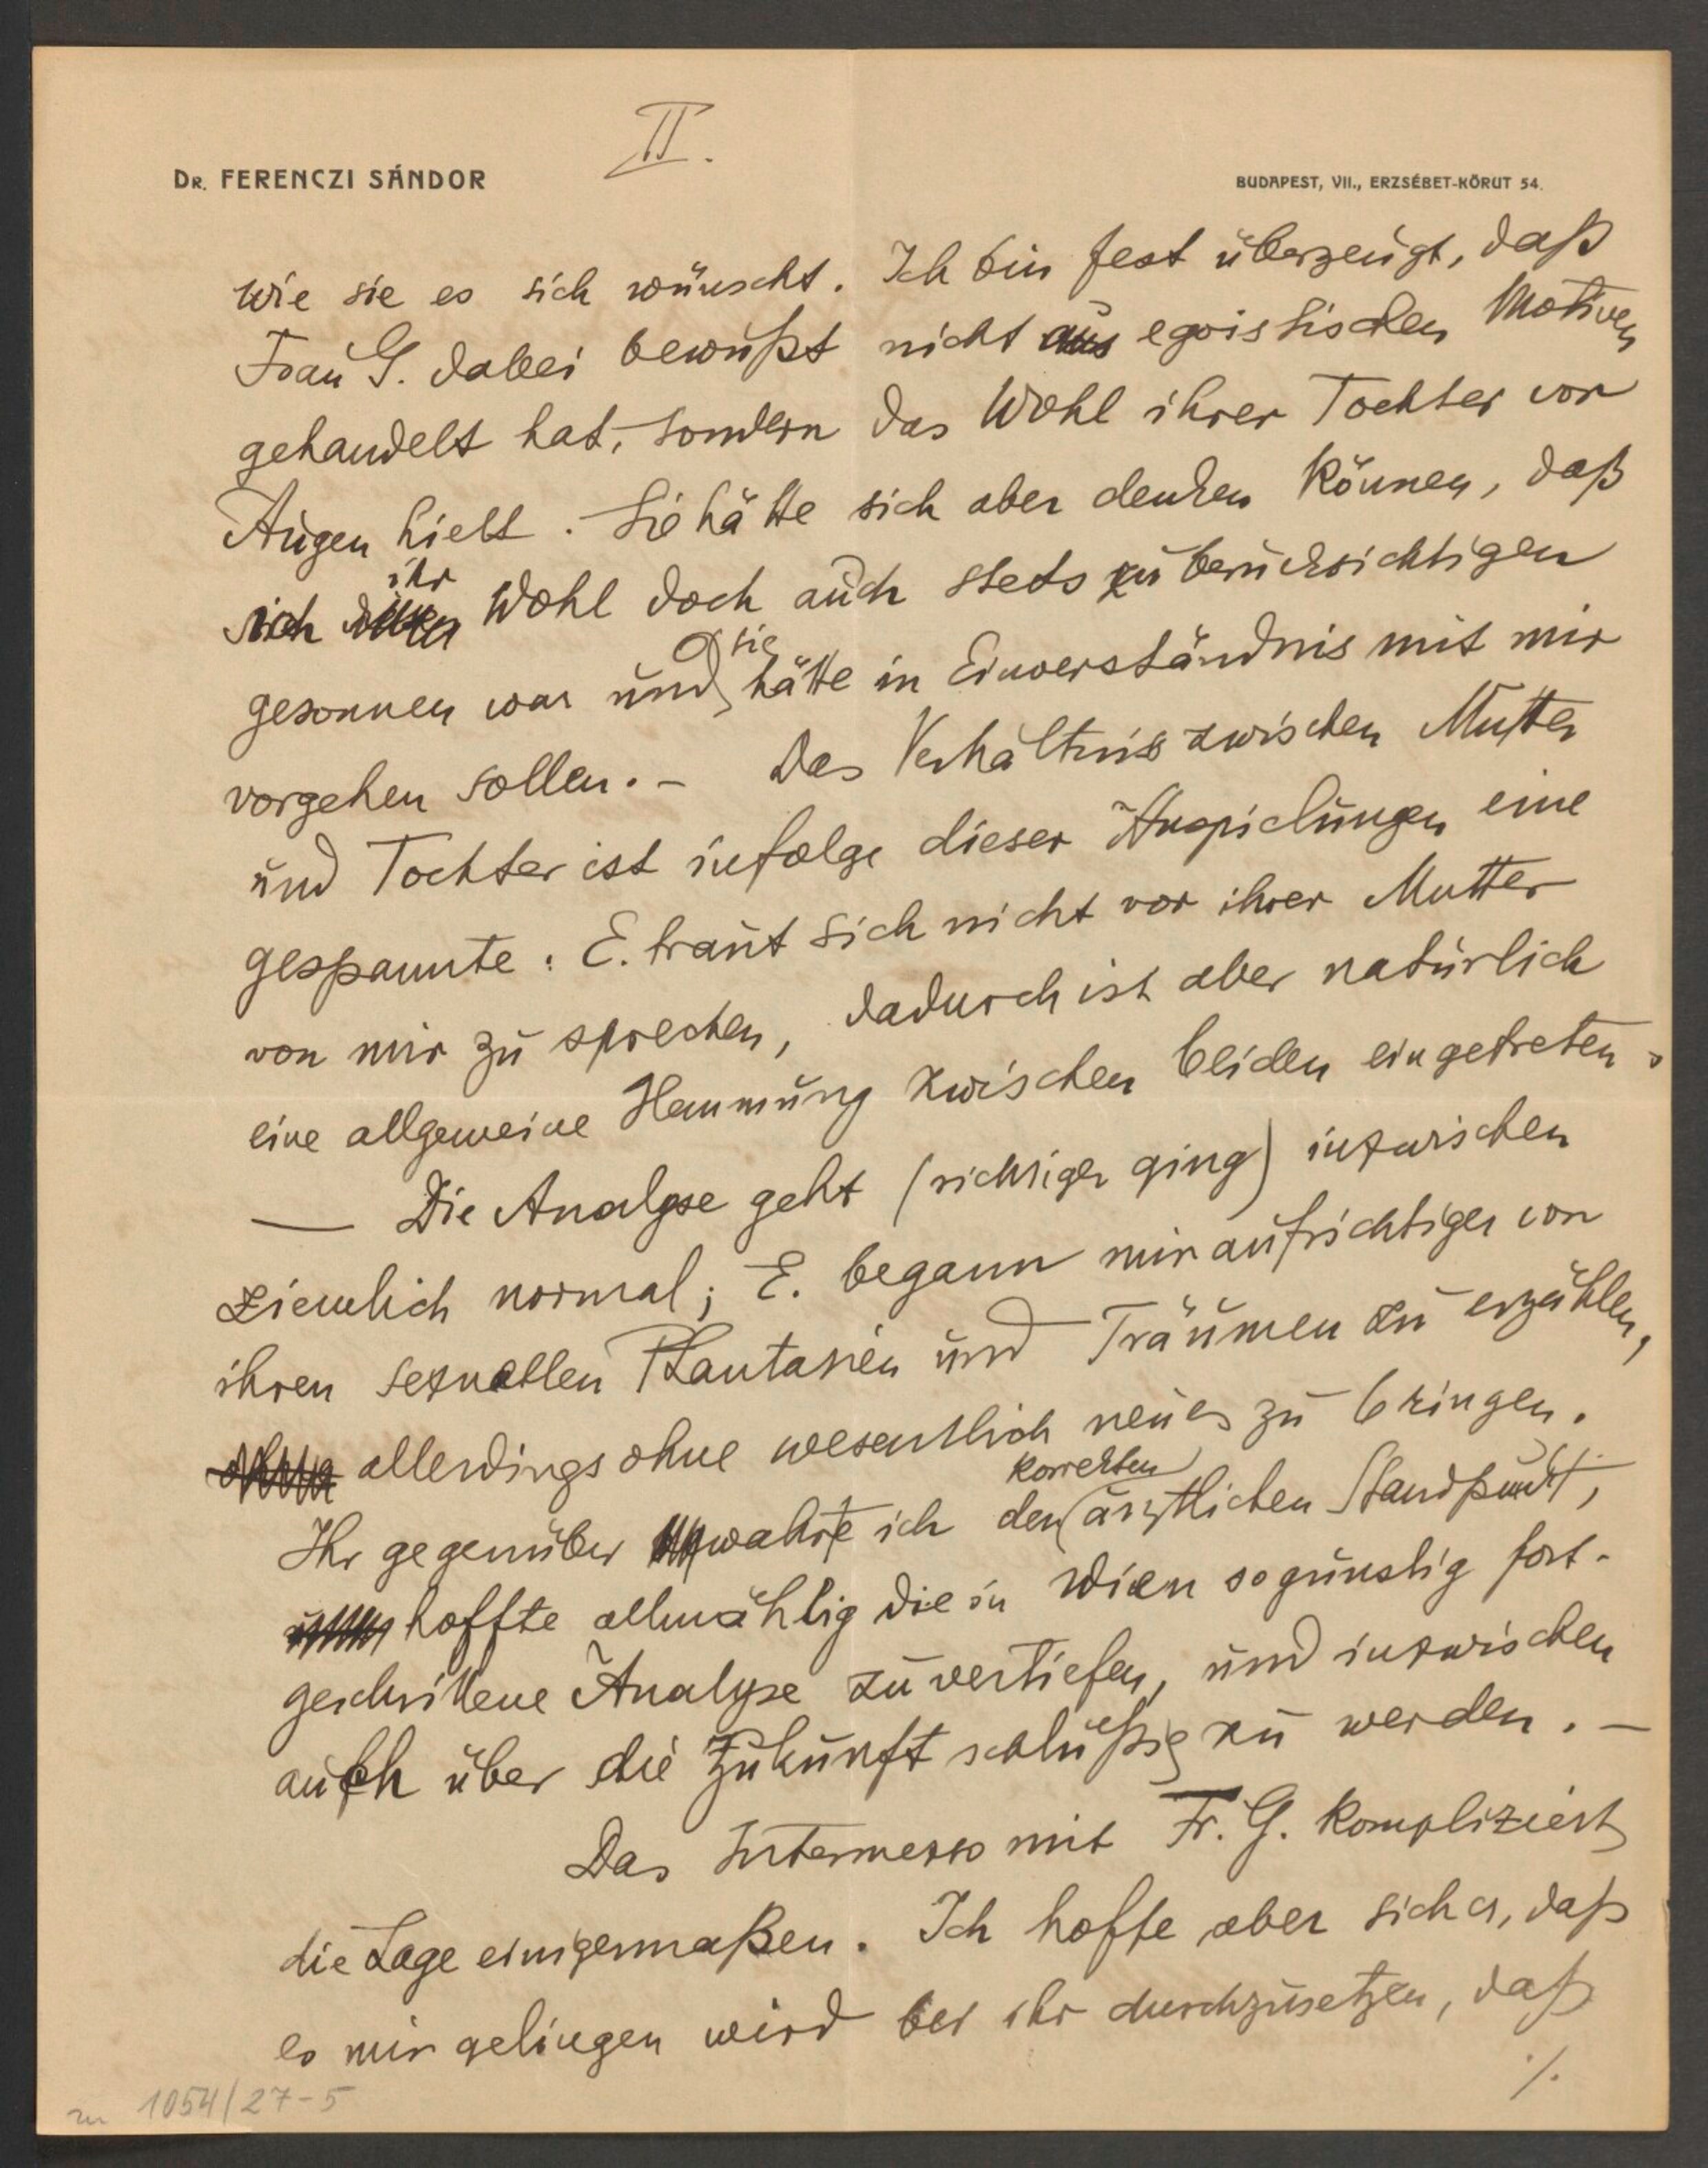 II.
DR. FERENCZI SÁNDOR
BUDAPEST, VII., ERZSÉBET-KÖRUT 54.
wie sie es sich wünscht. Ich bin fest überzeugt, daß
Frau G. dabei bewußt nicht aus egoistischen Motiven
gehandelt hat, sondern das Wohl ihrer Tochter vor
Augen hielt. Sie hätte sich aber denken können, daß
ich ihr Wohl doch auch stets zu berücksichtigen
gesonnen war und sie hätte in Einverständnis mit mir
vorgehen sollen. – Das Verhältnis zwischen Mutter
und Tochter ist infolge dieser Anspielungen eine
gespannte: E. traut sich nicht vor ihrer Mutter
von mir zu sprechen, dadurch ist aber natürlich
eine allgemeine Hemmung zwischen beiden eingetreten.
— Die Analyse geht (richtiger ging) inzwischen
ziemlich normal; E. begann mir aufrichtiger von
ihren sexuellen Phantasien und Träumen zu erzählen,
allerdings ohne wesentlich neues zu bringen.
Ihr gegenüber wahrte ich den korrekten ärztlichen Standpunkt,
hoffte allmählig die in Wien so günstig fort-
geschrittene Analyse zu vertiefen, und inzwischen
auch über die Zukunft schlüßig zu werden. –
Das Intermezzo mit Fr. G. kompliziert
die Lage einigermaßen. Ich hoffe aber sicher, daß
es mir gelingen wird bei ihr durchzusetzen, daß
./.
zu 1054/27-5